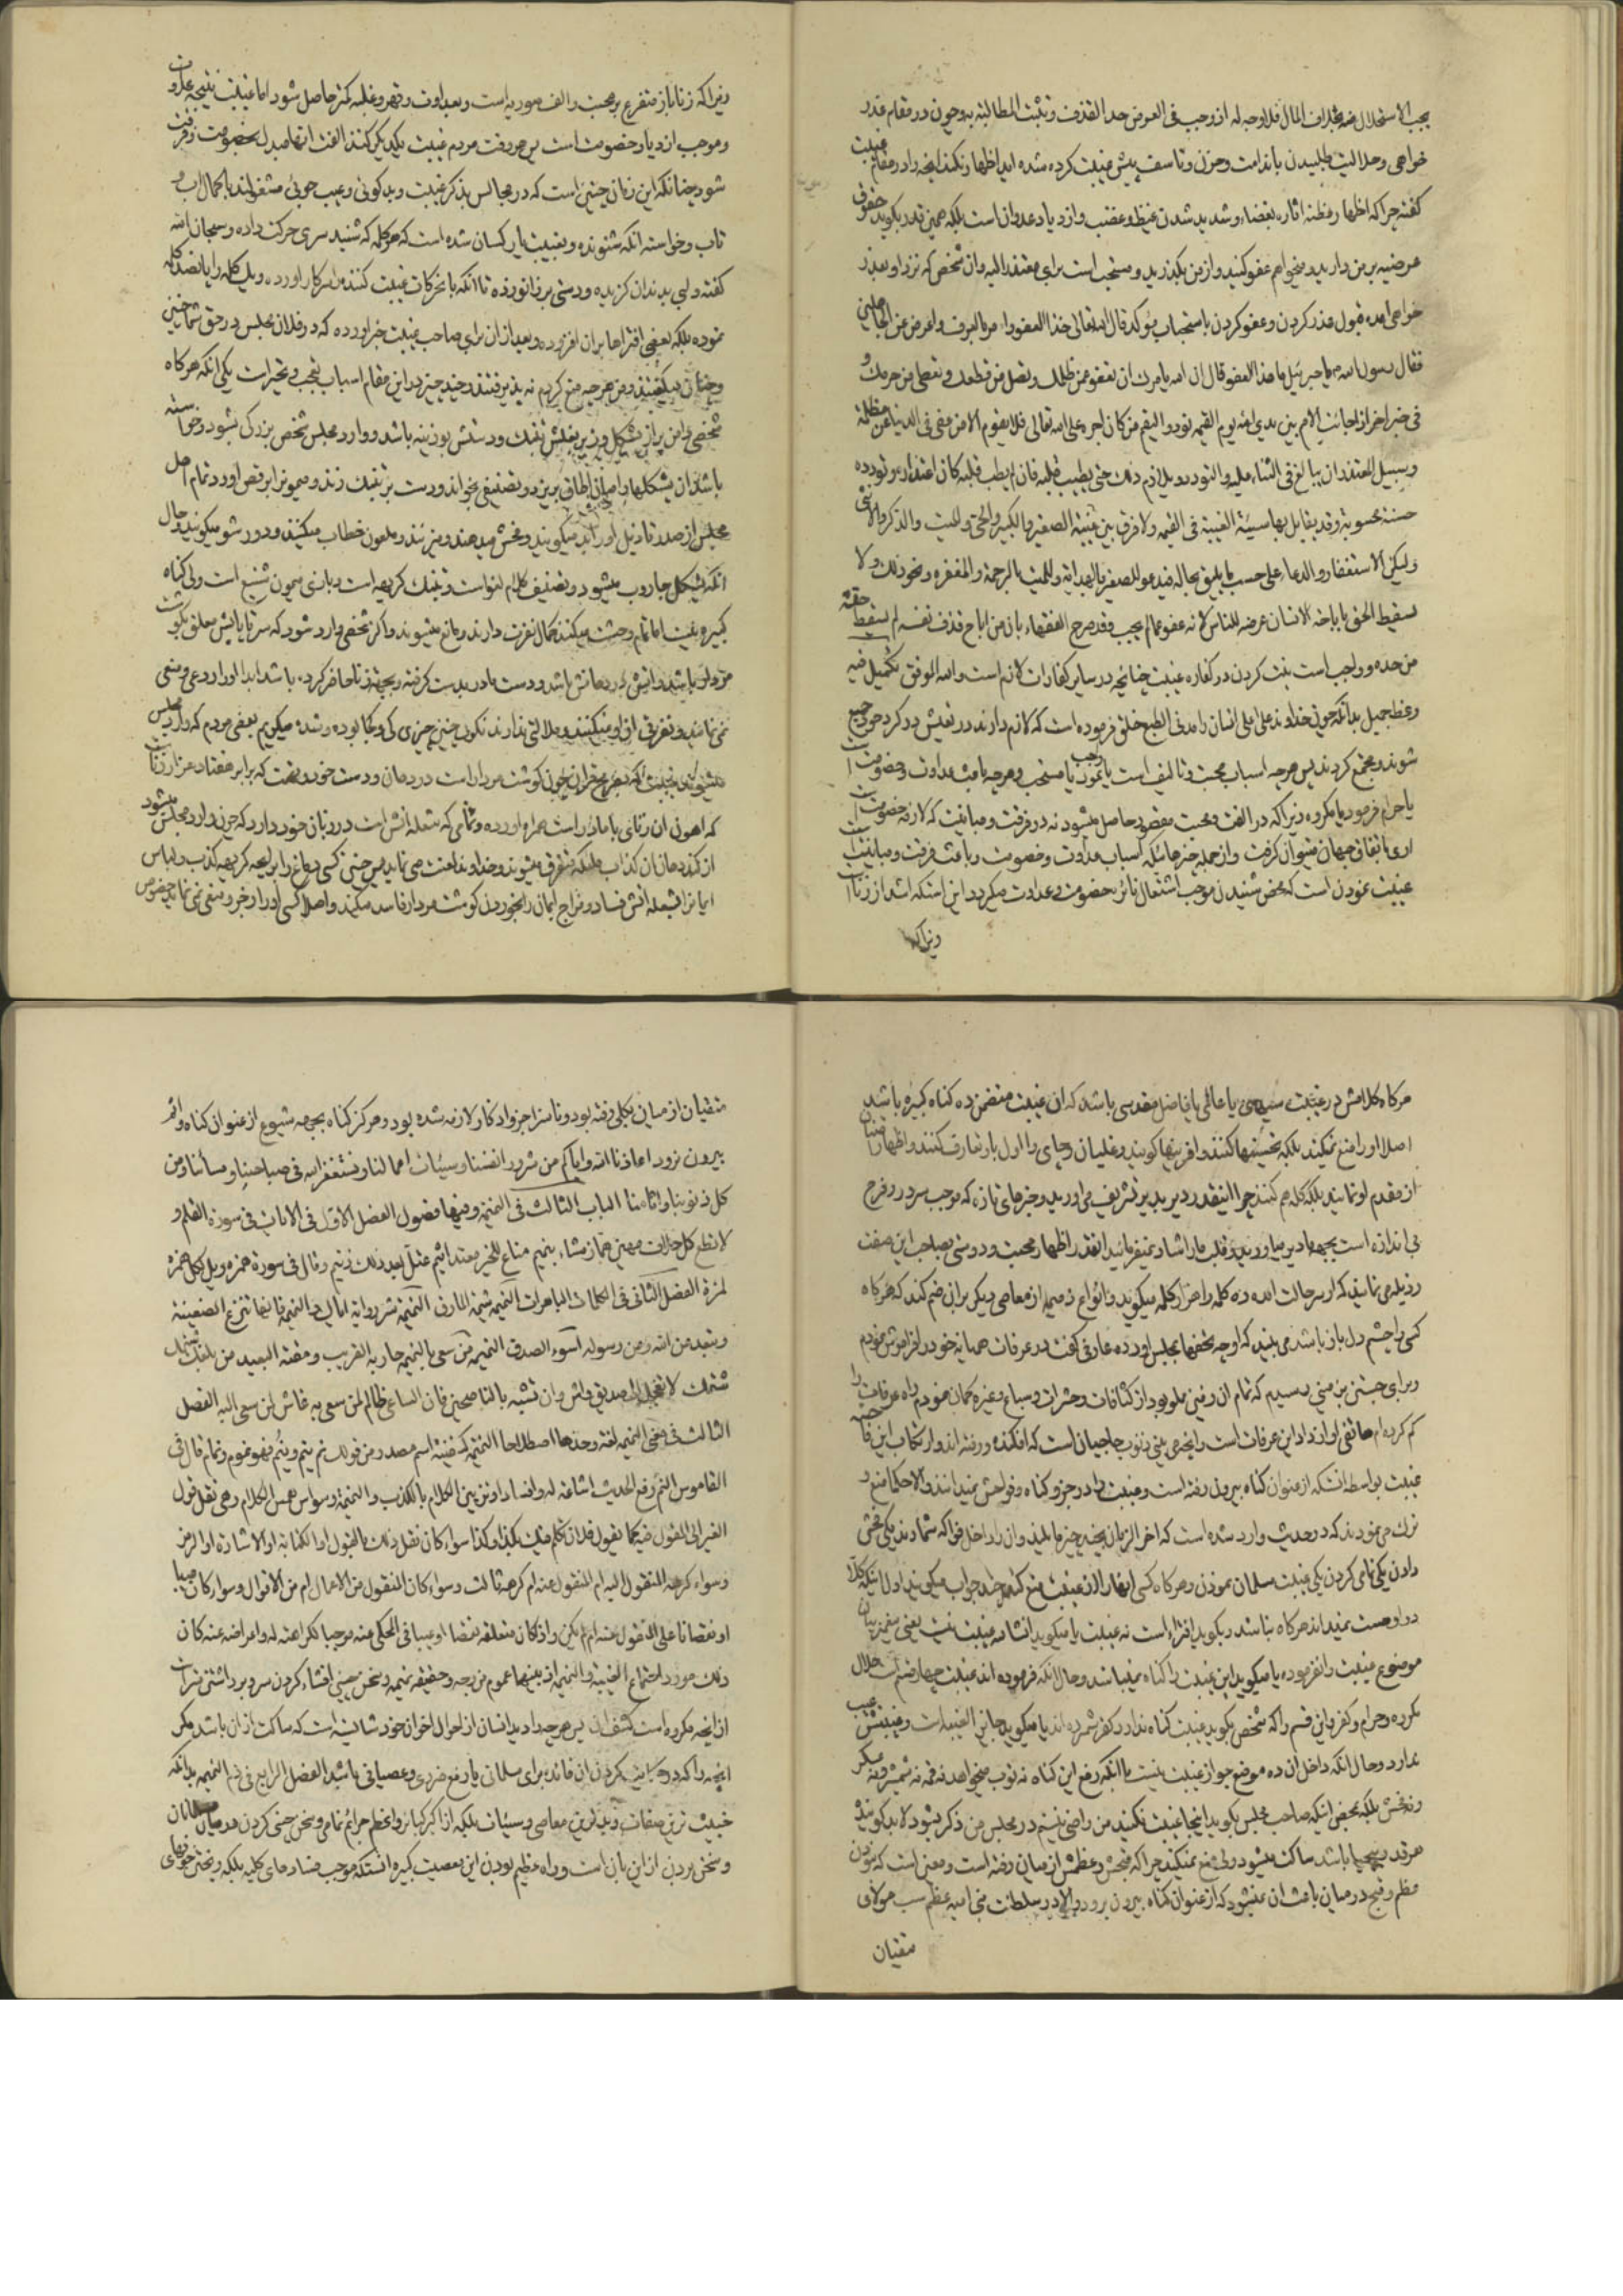 يجب الاستحلال منه بخلاف المال فلا وجه له از وجب فى العوض حد القذف و تثبت المطالبة به و چون در مقام عذر
خواهى و حلاليت طلبيدن با ندامت و حزن و تاسف پيش غيبت كرده شده ايد اظهار نكند انچه را در مقام غيبت
گفته چرا كه اظهار مظنه اثاره بغضاء و شديد شدن غيظ و غضب و ازدياد عدوان است بلكه همين قدر بگويد حقوق
عرضيه بر من داريد ميخواهم عفو كنيد و از من بگذريد و مستحب است براى معتذر اليه و ان شخص كه نزد او بعذر
خواهى امده قبول عذر كردن و عفو كردن باستحباب مؤكد قال الله تعالى خذ العفو وامر بالعرف واعرض عن الجاهلين
فقال رسول الله يا جبرئيل ما هذا العفو قال ان الله يامرك ان تعفو عمن ظلمك وتصل من قطعك وتعطى من حرمك و
فى خبر اخر اذا جاثت الامم بين يدى الله يوم القيمه نودوا ليقم من كان اجره على الله تعالى فلا يقوم الا من عفى فى الدنيا عن مظلمة
وسبيل المعتذر ان يبالغ فى الثناء عليه والتودد ويلازم ذلك حتى يطيب قلبه فان لم يطب قلبه كان اعتذاره وتودده
حسنة محسوبة وقد يقابل بها سيئة الغيبة فى القيمه ولا فرق بين غيبة الصغير والكبير والحى والميت والذكر والانثى
وليكن الاستغفار والدعاء على حسب ما يليق بحاله فيدعو للصغير بالهداية وللميت بالرحمة والمغفره ونحو ذلك ولا
يسقط الحق باباحة الانسان عرضه للناس لانه عفو عما لم يجب وقد صرح الفقهاء بان من اباح قذف نفسه لم يسقط حقه
من حده و واجب است نيت كردن در كفاره غيبت چنانچه در ساير كفارات لازم است والله الموفق تكميل فيه
وعظ جميل بدانكه چون خداوند على اعلى انسان را مدنى الطبع خلق فرموده است كه لازم دارند در تعيش دور كرد هم جميع
شوند و مجتمع گردند پس هرچه اسباب محبت و تاليف است يا واجب نمود يا مستحب و هرچه باعث عداوت و خصومت است
يا حرام فرمود يا مكروه زيرا كه در الفت و محبت مقصود حاصل ميشود نه در فرقت و مباينت كه لازمه خصومت است
ارى باتفاق جهان ميتوان گرفت و از جمله چيزهائيكه اسباب عداوت و خصومت و باعث فرقت و مباينت است
غيبت نمودن است كه محض شنيدن موجب اشتعال نائره خصومت و عداوت ميگردد اين استكه اشد از زنا است
زيرا كه
زيرا كه زنا باز متفرع بر محبت و الف صوريه است و بعداوت و قهر و غلبه كمتر حاصل شود اما غيبت نتيجه عداوت
و موجب ازدياد خصومت است پس هر وقت مردم غيبت يكديگر كنند الفت انها مبدل بخصومت و فرقت
شود چنانكه اين زمان چنين است كه در مجالس بذكر غيبت و بدگوئى و عيب جوئى مشغولند با كمال اب و
تاب و خواسته انكه شنونده و مغتاب يكسان شده است كه هر كلمه كه شنيد سرى حركت داده و سبحان الله
گفته و لبى بدندان گزيده و دستى بر زانو زده تا انكه بانحركات غيبت كننده را سر كار اورده و يك كلمه را پانصد كلمه
نموده بلكه بعضى افتراها بران افزوده و بعد از ان براى صاحب غيبت خبر اورده كه در فلان مجلس در حق شما چنين
و چنان ميگفتند و من هرچه منع كردم نه پذيرفتند و چند چيز در اين مقام اسباب تعجب و تحير است يكى انكه هرگاه
شخصى دامن پر از پشكل و زير بغلش تنبك و در دستش بوزينه باشد و وارد مجلس شخص بزرگى بشود و خواسته
باشد ان پشكلها را ميان اطاق بريزد و تصنيفى بخواند و دست بر تنبك زند و ميمون را برقص اورد تمام اهل
مجلس از صدر تا ذيل او را بد ميگويند و فحش ميدهند و ميزنند و ملعون خطاب ميكنند و دور شو ميگويند و حال
انكه پشكل جاروب ميشود و تصنيف كلام لغو است و تنبك كريه است و بازى ميمون شنيع است ولى گناه
كبيره نيست اما تمام وحشت ميكنند كمال نفرت دارند و مانع ميشوند و اگر شخصى وارد شود كه سر تا پايش معلق بگوشت
مردار باشد و اتش در دهانش باشد و دست مادر بدست گرفته و بجهة زنا حاضر كرده باشد ابدا او را ردعى و منعى
نمى نمايند و تفرقى از او نميكنند و ملالتى ندارند نگوئى چنين چيزى كى و كجا بوده و شده ميگويم بعضى مردم كه وارد مجلس
ميشوند غيبت كه بصريح قران چون گوشت مردار است در دهان و دست خود و تهمت كه برابر هفتاد هزار زنا است
كه اهون ان زناى با مادر است همراه اورده و نمامى كه شعله اتش است در زبان خود دارد كه چون وارد مجلس ميشود
از گند دهان ان كذاب ملئكه متفرق ميشوند و خداوند لعنت مى نمايد پس چنين كسى دماغ را برايحه كريهه كذب و لباس
ايمان را بشعله اتش فساد و مزاج ايمان را بخوردن گوشت مردار فاسد ميكند و اصلا كسى او را زجر و منعى نمى نمايد خصوص
هرگاه كلامش در غيبت سيدى يا عالمى يا فاضل مقدسى باشد كه ان غيبت متضمن ده گناه كبيره باشد
اصلا او را منع نميكنند بلكه تحسينها كنند و افرينها گويند و غليان و چاى را اول باو تعارف كنند و اظهار امتنان
از مقدم او نمايند بلكه گله هم كنند چرا اينقدر دير بدير تشريف مى اوريد و خبرهاى تازه كه موجب سرور و فرح
بى اندازه است بجهة ما دير مياوريد و قلب ما را شاد نميفرمائيد انقدر اظهار محبت و دوستى بصاحب اين صفت
رذيله مى نمايند كه او سر حالت امده ده كلمه را هزار كلمه ميگويد و انواع ذميمه از معاصى ديگر بران ضم كند كه هرگاه
كسى را چشم دل باز باشد مى بيند كه او چه تحفه ها بمجلس اورده عارفى گفت در عرفات هميانه خود را فراموش نمودم
و براى جستن بزمينى رسيدم كه تمام ان زمين مملو بود از كثافات و حشرات و سباع و غيره گمان نمودم راه عرفات را
گم كرده ام هاتفى اواز داد اين عرفات است و اينها مى بينى ذنوب حاجيان است كه افكنده و رفته اند و ارتكاب اين فاحشه
غيبت بواسطه انستكه از عنوان گناه بيرون رفته است و غيبت را در جزو گناه و فواحش نميدانند و الا حكما منع و
ترك مى نمودند كه در حديث وارد شده است كه اخر الزمان بچند چيز ما لذيذ و ان را داخل فواكه شمارند يكى فحش
دادن يكى نمامى كردن يكى غيبت مسلمان نمودن و هرگاه كسى انها را از غيبت منع كند چند جواب ميگويند اولا اينكه كلا
در او هست نميداند هرگاه نباشد و بگويد افترا است نه غيبت يا ميگويد انشاء الله غيبت نيست يعنى پيغمبر بيان
موضوع غيبت را نفرموده يا ميگويد اين غيبت را گناه نميباشد و حال انكه فرموده اند غيبت چهار قسم است حلال
مكروه و حرام و كفر و اين قسم را كه شخص بگويد غيبت گناه ندارد كفر شمرده اند يا ميگويد جايز الغيبه است و غيبتش عيب
ندارد و حال انكه داخل ان ده موضع جواز غيبت نيست با انكه رفع اين گناه نه توپ ميخواهد نه قمه نه شمشير و نه عسكر
و نه فحش بلكه بمحض اينكه صاحب مجلس بگويد اينجا غيبت نكنيد من راضى نيستم در مجلس من ذكر نشود لابد گوينده
هر قدر بيحيا باشد ساكت ميشود ولى منع نميكند چرا كه قبحش و عظمش از ميان رفته است و معين است كه بودن
عظم و قبح در ميان باعث ان نميشود كه از عنوان گناه بيرون برود والا در سلطنت بنى اميه عظم سب مولاى
متقيان
متقيان از ميان بكلى رفته بود و ناسزا جزو اذكار لازمه شده بود و هرگز گناه بجهة شيوع از عنوان گناه و اثم
بيرون نرود اعاذنا الله واياكم من شرور انفسنا وسيئات اعمالنا ونستغفر الله فى صباحنا ومسائنا ومن
كل ذنوبنا واثامنا الباب الثالث فى النميمه وفيها فصول الفصل الاول فى الايات فى سورة القلم و
لا تطع كل حلاف مهين هماز مشاء بنميم مناع للخير معتد اثيم عتل بعد ذلك زنيم وقال فى سورة همزه ويل لكل همزه
لمزة الفصل الثانى فى الكلمات الباهرات النميمه شيمة المارق النميمة شر رواية اياك والنميمة فانها تزرع الضغينة
وتبعد من الله ومن رسوله اسوء الصدق النميمه من سعى بالنميمه حاربه القريب ومقته البعيد من بلغك شتمك
شتمك لا تعجل الى تصديق واش وان تشبه بالناصحين فان الساعى ظالم لمن سعى به غاش لمن سعى اليه الفصل
الثالث فى معنى النميمه لغة وحدها اصطلاحا النميمة كسفينة اسم مصدر من قولك نم ينم وينم فهو نموم ونمام قال فى
القاموس النم رفع الحديث اشاعة له وافسادا وتزيين الكلام بالكذب والنميمة وسواس همس الكلام وهى نقل قول
الغير الى المقول فيه كما يقول فلان تكلم فيك بكذا وكذا سواء كان نقل ذلك بالقول او الكتابة او الاشارة او الرمز
وسواء كرهه المنقول اليه ام المنقول عنه ام كرهه ثالث وسواء كان المنقول من الاعمال ام من الاقوال وسواء كان عيبا
او نقصانا على المنقول عنه ام لم يكن واذا كان متعلقه نقصا او عيبا فى المحكى عنه موجبا لكراهته له واعراضه عنه كان
ذلك مورد اجتماع الغيبة والنميمه اذ بينهما عموم من وجه و حقيقه نميمه و سخن چينى افشاء كردن سر و برداشتن ستر است
از انچه مكروه است كشف ان پس هرچه را ديد انسان از احوال اخوان خود شايسته است كه ساكت از ان باشد مگر
انچه را كه در حكايت كردن ان فائده براى مسلمانى يا رفع ضررى و عصيانى باشد الفصل الرابع فى ذم النميمه بدانكه
خبيث ترين صفات و بدترين معاصى و سيئات بلكه از اكبر كبائر و اعظم جرائم نمامى و سخن چينى كردن در ميان مسلمانان
و سخن بردن از اين بان است و راه عظيم بودن اين معصيت كبيره انستكه موجب فسادهاى كليه بلكه ريختن خونهاى